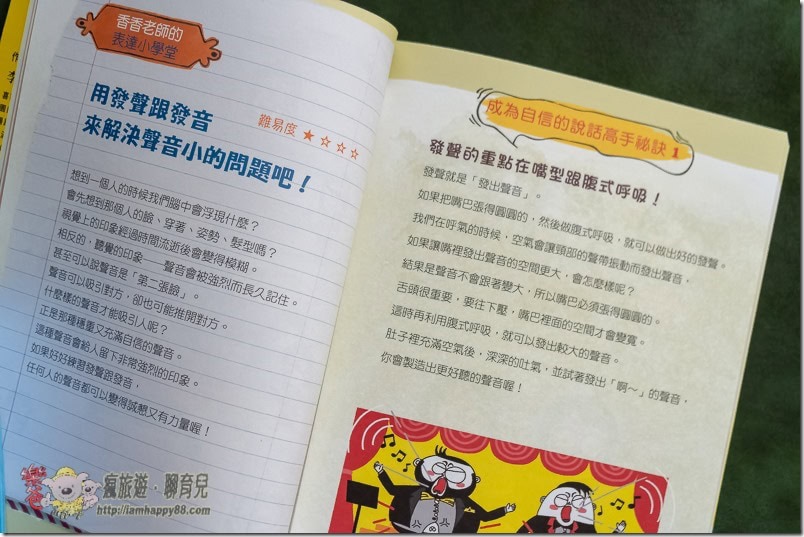 香香老師的
表達小學堂
用發聲跟發音
來解決聲音小的問題吧！
難易度 ★☆☆☆
想到一個人的時候我們腦中會浮現什麼？
會先想到那個人的臉、穿著、姿勢、髮型嗎？
視覺上的印象經過時間流逝後會變得模糊。
相反的，聽覺的印象——聲音會被強烈而長久記住。
甚至可以說聲音是「第二張臉」。
聲音可以吸引對方，卻也可能推開對方。
什麼樣的聲音才能吸引人呢？
正是那種穩重又充滿自信的聲音。
這種聲音會給人留下非常強烈的印象。
如果好好練習發聲跟發音，
任何人的聲音都可以變得誠懇又有力量喔！
成為自信的說話高手祕訣 1
發聲的重點在嘴型跟腹式呼吸！
發聲就是「發出聲音」。
如果把嘴巴張得圓圓的，然後做腹式呼吸，就可以做出好的發聲。
我們在呼氣的時候，空氣會讓頸部的聲帶振動而發出聲音，
如果讓嘴裡發出聲音的空間更大，會怎麼樣呢？
結果是聲音不會跟著變大，所以嘴巴必須張得圓圓的。
舌頭很重要，要往下壓，嘴巴裡面的空間才會變寬。
這時再利用腹式呼吸，就可以發出較大的聲音。
肚子裡充滿空氣後，深深的吐氣，並試著發出「啊～」的聲音，
你會製造出更好聽的聲音喔！
瘋旅遊．聊育兒
http://iamhappy88.com